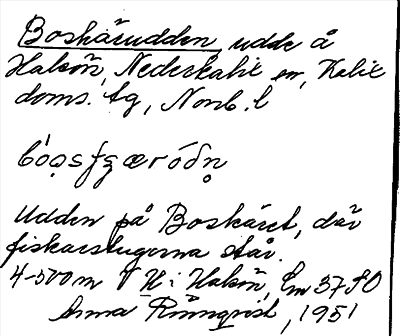 Boskärudden udde å
Halsön, Nederkalix sn, Kalix
doms. tg, Norrb. l
Udden på Boskäret, där
fiskarstugorna står.
4-500 m V H i Halsön, Em 37 SO
Anna Rönnqvist, 1951